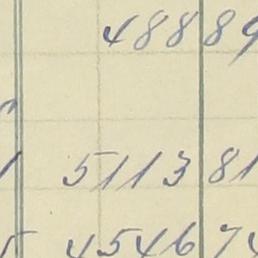 48889
1 5113 81
5 4546 74